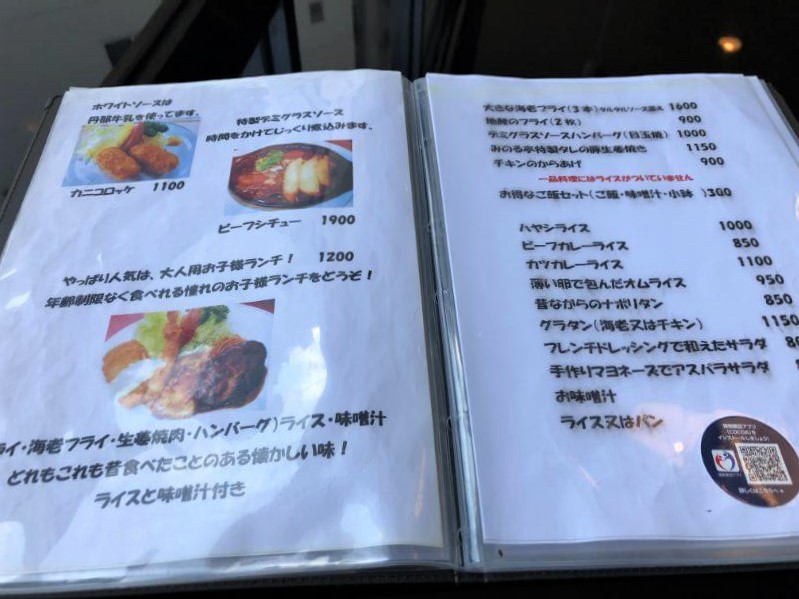 ホワイトソースは
丹那牛乳を使ってます。
カニコロッケ 1100
特製デミグラスソース
時間をかけてじっくり煮込みます。
ビーフシチュー 1900
やっぱり人気は、大人用お子様ランチ! 1200
年齢制限なく食べれる憧れのお子様ランチをどうぞ!
ライ・海老フライ・生姜焼肉・ハンバーグ)ライス・味噌汁
どれもこれも昔食べたことのある懐かしい味!
ライスと味噌汁付き
大きな海老フライ(3本)タルタルソース添え 1600
地鯵のフライ(2枚) 900
デミグラスソースハンバーグ(目玉焼) 1000
みのる亭特製タレの豚生姜焼き 1150
チキンのからあげ 900
一品料理にはライスがついていません
お得なご飯セット(ご飯・味噌汁・小鉢 )300
ハヤシライス 1000
ビーフカレーライス 850
カツカレーライス 1100
薄い卵で包んだオムライス 950
昔ながらのナポリタン 850
グラタン(海老又はチキン) 1150
フレンチドレッシングで和えたサラダ
手作りマヨネーズでアスパラサラダ
お味噌汁
ライス又はパン
接触確認アプリ
(COCOA)を
インストールしましょう!
詳しくはこちらへ